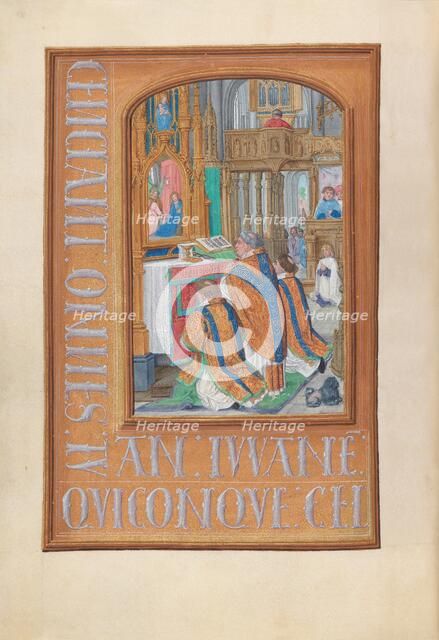 ORNIES : IV
AN : IVVANE :
QVICONQVE : CEL
Heritage
Heritage
Heritage
Heritage
Heritage
Heritage